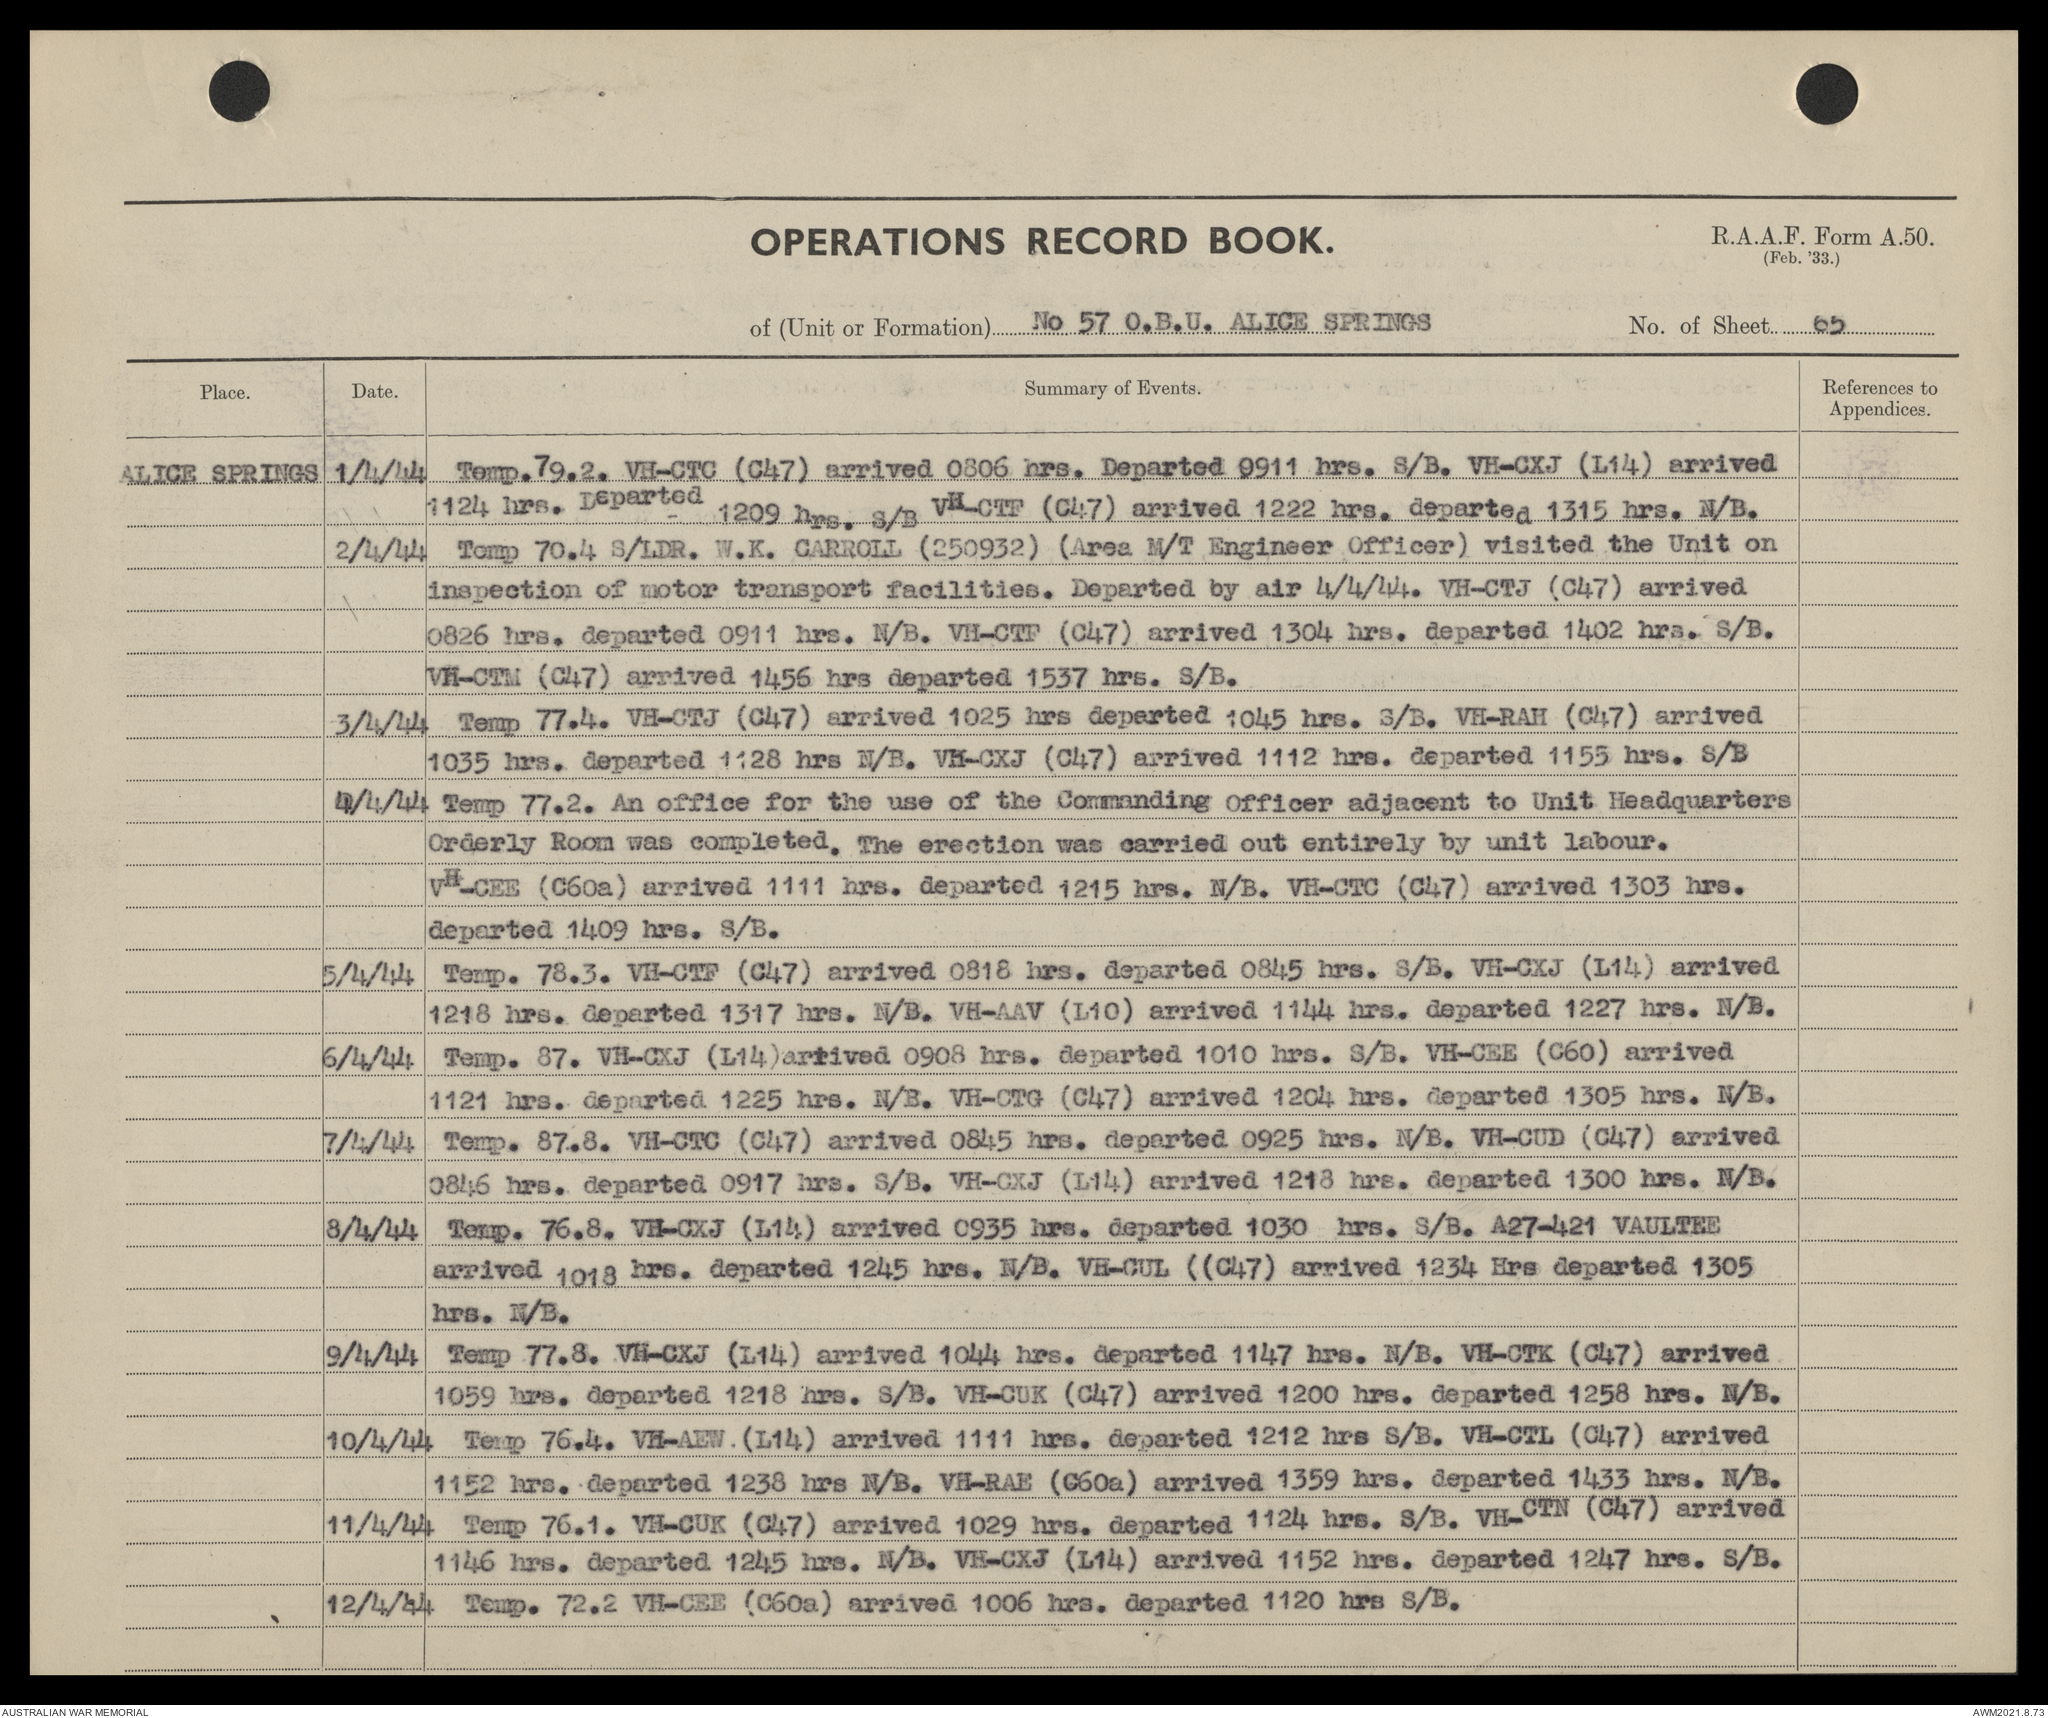 OPERATIONS RECORD BOOK.
R.A.A.F. Form A.50.
(Feb. '33.)
of (Unit or Formation) No 57 O.B.U. ALICE SPRINGS
No. of Sheet 65
Place. Date. Summary of Events. References to
Appendices.
ALICE SPRINGS 1/4/44 Temp.79.2. VH-CTC (C47) arrived 0806 hrs. Departed 0911 hrs. S/B. VH-CXJ (L14) arrived
1124 hrs. Departed 1209 hrs. S/B VH-CTF (C47) arrived 1222 hrs. departed 1315 hrs. N/B.
2/4/44 Temp 70.4 S/LDR. W.K. CARROLL (250932) (Area M/T Engineer Officer) visited the Unit on
inspection of motor transport facilities. Departed by air 4/4/44. VH-CTJ (C47) arrived
0826 hrs. departed 0911 hrs. N/B. VH-CTF (C47) arrived 1304 hrs. departed 1402 hrs. S/B.
VH-CTM (C47) arrived 1456 hrs departed 1537 hrs. S/B.
3/4/44 Temp 77.4. VH-CTJ (C47) arrived 1025 hrs departed 1045 hrs. S/B. VH-RAH (C47) arrived
1035 hrs. departed 1128 hrs N/B. VH-CXJ (C47) arrived 1112 hrs. departed 1155 hrs. S/B
4/4/44 Temp 77.2. An office for the use of the Commanding Officer adjacent to Unit Headquarters
Orderly Room was completed. The erection was carried out entirely by unit labour.
VH-CEE (C60a) arrived 1111 hrs. departed 1215 hrs. N/B. VH-CTC (C47) arrived 1303 hrs.
departed 1409 hrs. S/B.
5/4/44 Temp. 78.3. VH-CTF (C47) arrived 0818 hrs. departed 0845 hrs. S/B. VH-CXJ (L14) arrived
1218 hrs. departed 1317 hrs. N/B. VH-AAV (L10) arrived 1144 hrs. departed 1227 hrs. N/B.
6/4/44 Temp. 87. VH-CXJ (L14)arrived 0908 hrs. departed 1010 hrs. S/B. VH-CEE (C60) arrived
1121 hrs. departed 1225 hrs. N/B. VH-CTG (C47) arrived 1204 hrs. departed 1305 hrs. N/B.
7/4/44 Temp. 87.8. VH-CTC (C47) arrived 0845 hrs. departed 0925 hrs. N/B. VH-CUD (C47) arrived
0846 hrs. departed 0917 hrs. S/B. VH-CXJ (L14) arrived 1218 hrs. departed 1300 hrs. N/B.
8/4/44 Temp. 76.8. VH-CXJ (L14) arrived 0935 hrs. departed 1030 hrs. S/B. A27-421 VAULTEE
arrived 1018 hrs. departed 1245 hrs. N/B. VH-CUL ((C47) arrived 1234 Hrs departed 1305
hrs. N/B.
9/4/44 Temp 77.8. VH-CXJ (L14) arrived 1044 hrs. departed 1147 hrs. N/B. VH-CTK (C47) arrived
1059 hrs. departed 1218 hrs. S/B. VH-CUK (C47) arrived 1200 hrs. departed 1258 hrs. N/B.
10/4/44 Temp 76.4. VH-AEW.(L14) arrived 1111 hrs. departed 1212 hrs S/B. VH-CTL (C47) arrived
1152 hrs. departed 1238 hrs N/B. VH-RAE (C60a) arrived 1359 hrs. departed 1433 hrs. N/B.
11/4/44 Temp 76.1. VH-CUK (C47) arrived 1029 hrs. departed 1124 hrs. S/B. VH-CTN (C47) arrived
1146 hrs. departed 1245 hrs. N/B. VH-CXJ (L14) arrived 1152 hrs. departed 1247 hrs. S/B.
12/4/44 Temp. 72.2 VH-CEE (C60a) arrived 1006 hrs. departed 1120 hrs S/B.
AUSTRALIAN WAR MEMORIAL
AWM2021.8.73